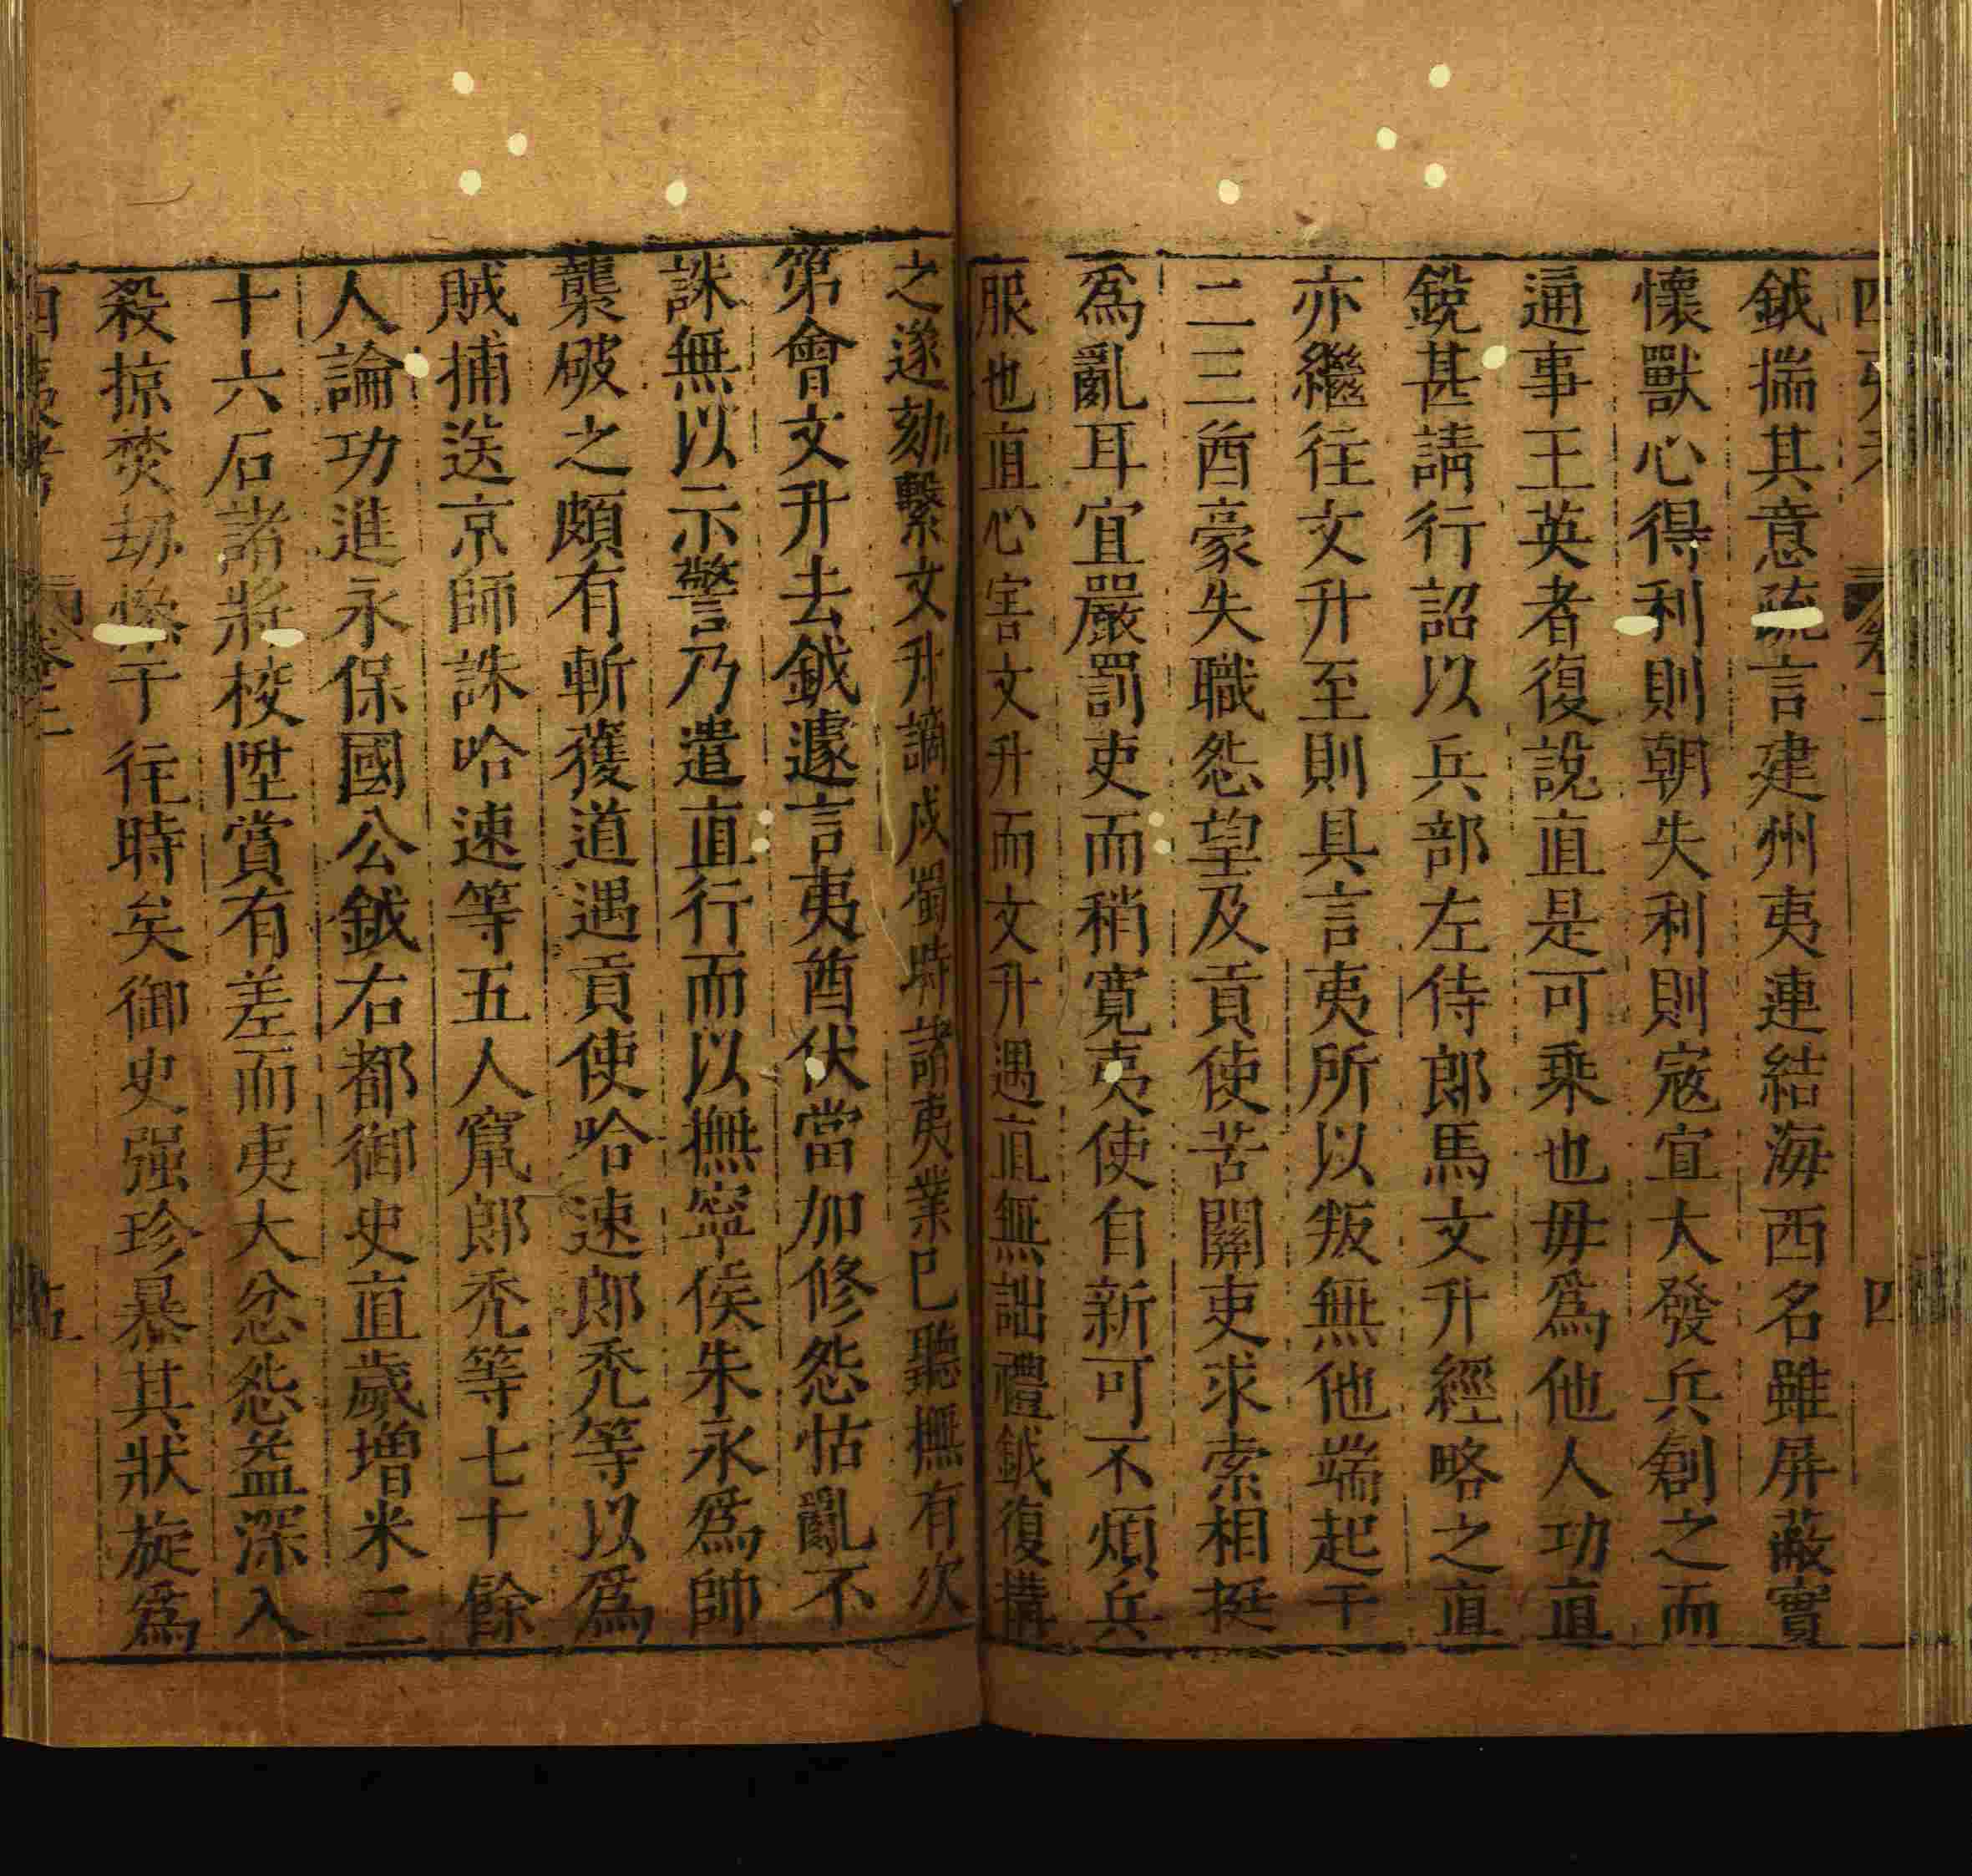 四夷考 卷二 四
鉞揣其意疏言建州夷連結海西名雖屏蔽實
懷獸心得利則朝失利則寇宜大發兵創之而
通事王英者復說直是可乘也毋爲他人功直
銳甚請行詔以兵部左侍郎馬文升經略之直
亦繼往文升至則具言夷所以叛無他端起于
二三酋豪失職怨望及貢使苦關吏求索相挺
爲亂耳宜嚴罰吏而稍寬夷使自新可不煩兵
服也直心害文升而文升遇直無詘禮鉞復搆
之遂劾繫文升謫戍蜀時諸夷業已聽撫有次
第會文升去鉞遽言夷酋伏當加修怨怙亂不
誅無以示警乃遣直行而以撫寧侯朱永爲帥
襲破之頗有斬獲道遇貢使哈速郎禿等以爲
賊捕送京師誅哈速等五人竄郎禿等七十餘
人論功進永保國公鉞右都御史直歲增米三
十六石諸將校陞賞有差而夷大忿怨益深入
殺掠焚劫慘于往時矣御史强珍暴其狀旋爲
四夷考 卷二 五